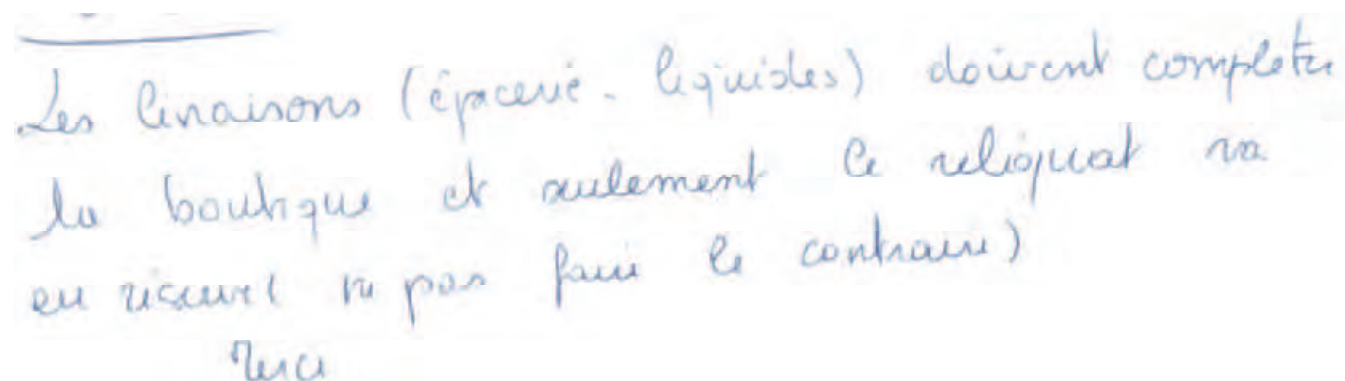 Les livraisons (épicerie - liquides) doivent compléter
la boutique et seulement le reliquat va
en réserve ( ne pas faire le contraire)
Merci